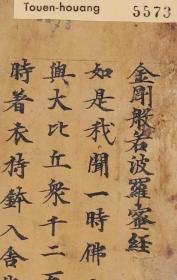 Touen-houang 5573
5573
金剛般若波羅蜜經
如是我聞一時佛
與大比丘衆千二百
時著衣持鉢入舍